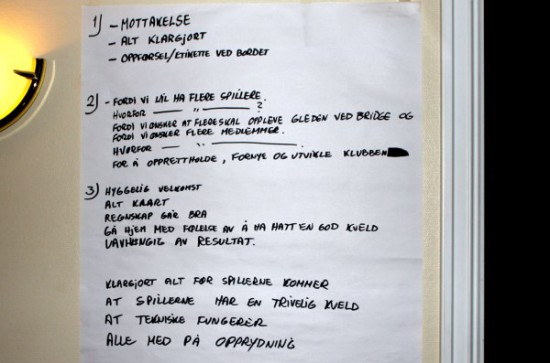 1) - MOTTAKELSE
- ALT KLARGJORT
- OPPFØRSEL/ETIKETTE VED BORDET
2) - FORDI VI VIL HA FLERE SPILLERE.
HVORFOR — " — ?
FORDI VI ØNSKER AT FLERE SKAL OPPLEVE GLEDEN VED BRIDGE OG
FORDI VI ØNSKER FLERE MEDLEMMER.
HVORFOR — " —.
FOR Å OPPRETTHOLDE, FORNYE OG UTVIKLE KLUBBEN
3) HYGGELIG VELKOMST
ALT KLART
REGNSKAP GÅR BRA
GÅ HJEM MED FØLELSE AV Å HA HATT EN GOD KVELD
UAVHENGIG AV RESULTAT.
KLARGJORT ALT FØR SPILLERNE KOMMER
AT SPILLERNE HAR EN TRIVELIG KVELD
AT TEKNISKE FUNGERER
ALLE MED PÅ OPPRYDNING